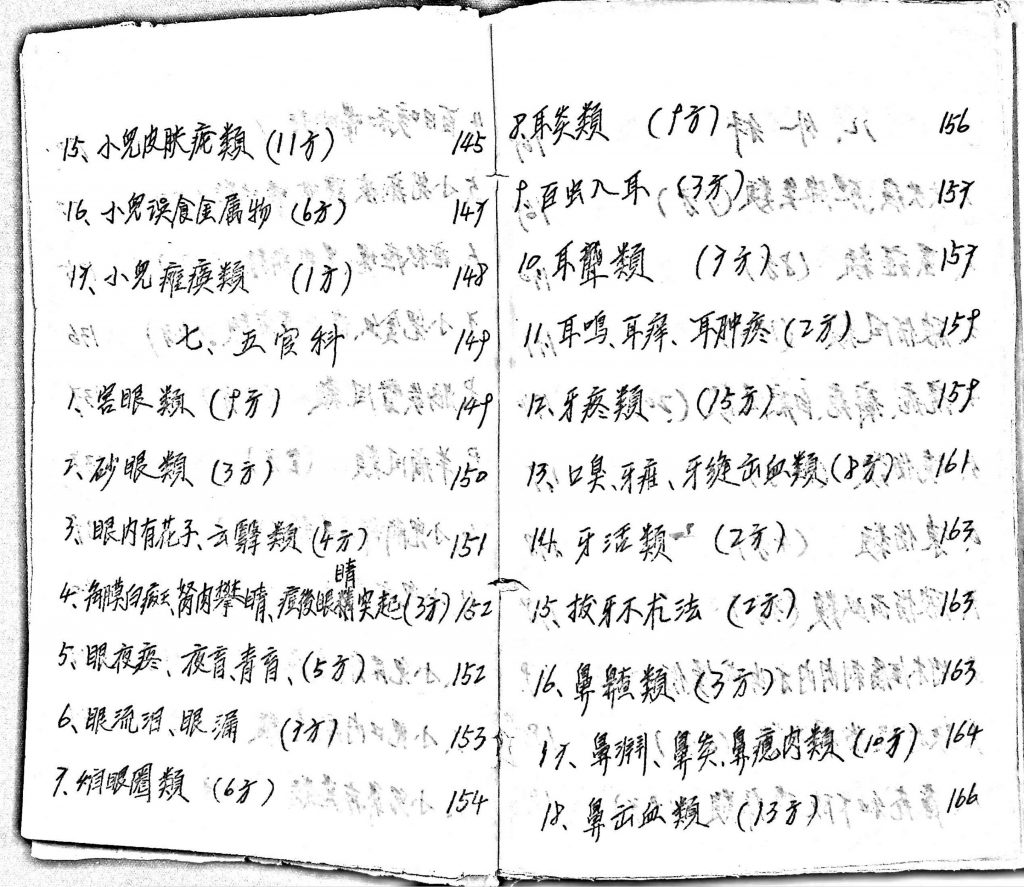 15、小兒皮肤疮類 (11方) 145
16、小兒误食金属物 (6方) 147
17、小兒瘫痪類 (1方) 148
七、五官科 149
1、害眼類 (9方) 149
2、砂眼類 (3方) 150
3、眼内有花子、云翳類 (4方) 151
4、角膜白斑、胬肉攀睛、痘後眼睛突起 (3方) 152
5、眼夜疼、夜盲、青盲、(5方) 152
6、眼流泪、眼漏 (7方) 153
7、烂眼圈類 (6方) 154
8、耳炎類 (9方) 156
9、百虫入耳 (3方) 157
10、耳聾類 (7方) 157
11、耳鸣、耳痒、耳肿疼 (2方) 159
12、牙疼類 (15方) 159
13、口臭、牙疳、牙缝出血類 (8方) 161
14、牙活類 (2方) 163
15、拔牙不疼法 (2方) 163
16、鼻齇類 (3方) 163
17、鼻渊、鼻炎、鼻瘜肉類 (10方) 164
18、鼻出血類 (13方) 166